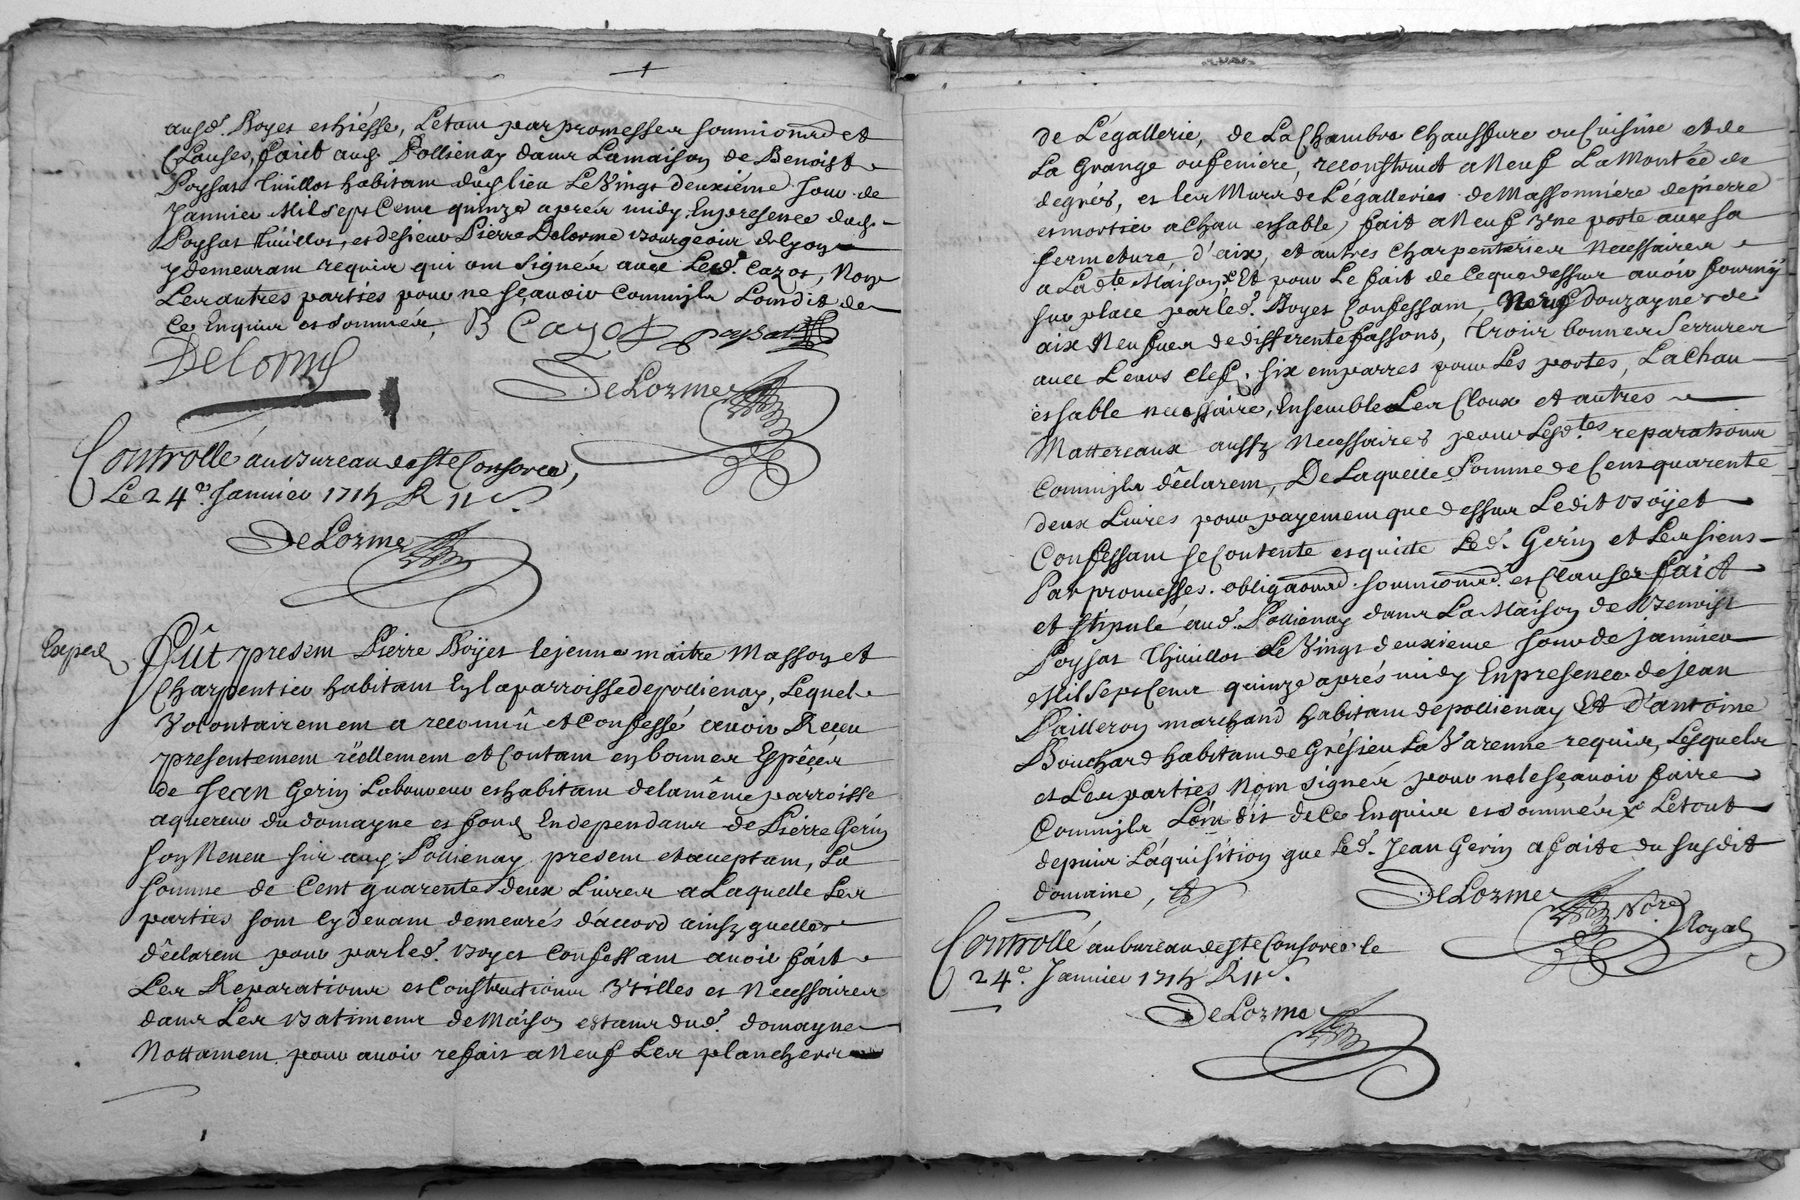 aud. Boyet et hiesse, Le tout par promesses soumionnd et
Clauses, faict aud. Pollienay dans La maison de Benoist
Poyssat Thuillor habitant dud. lieu Le Vingt deuxiéme Jour de
Janvier Mil sept Cent quinze aprés midy, En presence dud.
Poyssat Thuillor, et de sieur Pierre Delorme bourgeois de Lyon
y demeurant requis qui ont signés avec Led. Cazot, Non
Les autres parties pour ne sçavoir Commis La Loin dit de
Ce Enquis et sommés, B Cayot poyssat
DeLorme
DeLorme
Controllé au bureau de Ste Consorce,
Le 24e. Janvier 1715 R 11 s.
DeLorme
Exped
Fût present Pierre Boyet le jenne maitre Masson et
Charpentier habitant En la parroisse de pollienay, Lequel
Volontairement a reconnû et Confessé avoir Receu
presentement réellement et Contant en bonnes Espêces
de Jean Gerin Laboureur et habitant de la même parroisse
aquereur du domayne et fond En dependans de Pierre Gerin
son Neveu sur aud. Pollienay present et aceptant, La
somme de Cent quarente deux Livres a Laquelle Les
parties sont Cy devant demeurés d'accord ainsy quelles
dêclarent pour par led. boyet Confessant avoir fait
Les Reparations et Constructions Vtilles et Necessaires
dans Les batimens de Maison estans dud. domayne
Nottament pour avoir refait a Neuf Les planchers
de L'égallerie, de La Chambre Chauffure ou Cuisine et de
La Grange ou feniere, reconstruit a Neuf La Montée de
degrés, et les Murs de L'égalleries de Massonnière de pierre
et mortier a Chau et sable, fait a Neuf Vne porte avec sa
fermeture d'aix, et autres Charpenteries Necessaires
a Ladte Maison, Et pour Le fait de Ce que dessus avoir fourny
sur place par led. Boyet Confessant, Neuf douzaynes de
aix Neufues de differente fassons, trois bonnes Serrures
avec Leurs Clef, six emparres pour Les portes, La Chau
et sable necessaire, Ensembles Les Cloux et autres
Mattereaux aussy Necessaires pour Lesdtes reparations
Commis La dêclarent, De Laquelle Somme de Cent quarente
deux Livres pour payement que dessus Ledit boyet
Confessant se Contente et quitte Led. Gerin et Les siens
Par promesses. obligaonnd. soumionnd. et Clauses faict
et stipulé aud. Pollienay dans La Maison de Benoist
Poyssat Thuillor Le Vingt deuxieme Jour de janvier
Mil Sept Cent quinze aprés midy En presence de Jean
Pailleron marchand habitant de pollienay Et d'antoine
Bouchard habitant de Grésieu La Varenne requis, Lesquels
et Les parties N'ont signés pour ne le sçavoir faire
Commis La L'ont dit de Ce Enquis et sommés x Le tout
depuis L'aquisition que Led. Jean Gerin a faite du susdit
domaine,
DeLorme Nore Royal
Controllé au bureau de Ste Consorce le
24e. Janvier 1715 R 11 s.
DeLorme